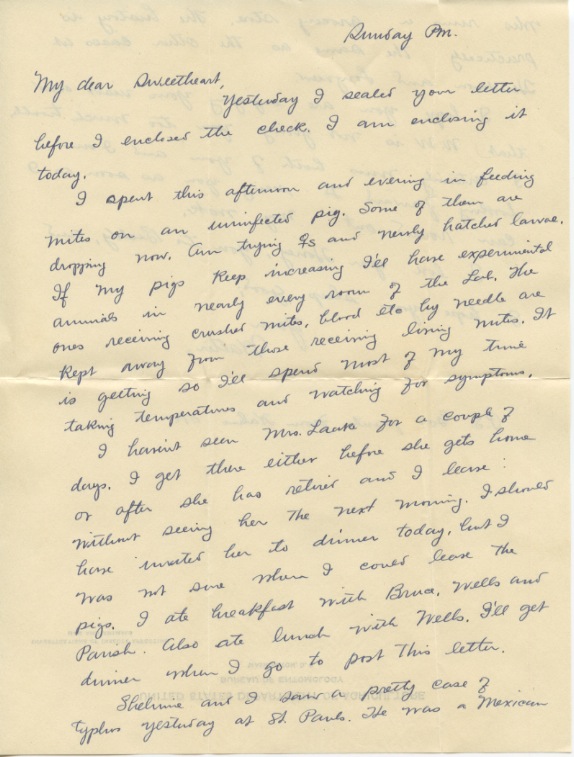 Sunday Pm.
My dear Sweetheart,
Yesterday I sealed your letter
before I enclosed the check. I am enclosing it
today.
I spent this afternoon and evening in feeding
mites on an uninfected pig. Some of them are
dropping now. Am trying ♀s and newly hatched larvae.
If my pigs keep increasing I'll have experimental
animals in nearly every room of the Lab. The
ones receiving crushed mites, blood etc by needle are
kept away from those receiving living mites. It
is getting so I'll spend most of my time
taking temperatures and watching for symptoms.
I haven't seen Mrs. for a couple of
days. I get there either before she gets home
or after she has retired and I leave
without seeing her the next morning. I should
have invited her to dinner today, but I
was not sure when I could leave the
pigs. I ate breakfast with Bruce, Wells and
Parish. Also ate lunch with Wells. I'll get
dinner when I go to post this letter.
and I saw a pretty case of
typhus yesterday at St. Pauls. He was a Mexican
BUREAU OF ENTOMOLOGY
UNITED STATES DEPARTMENT OF AGRICULTURE